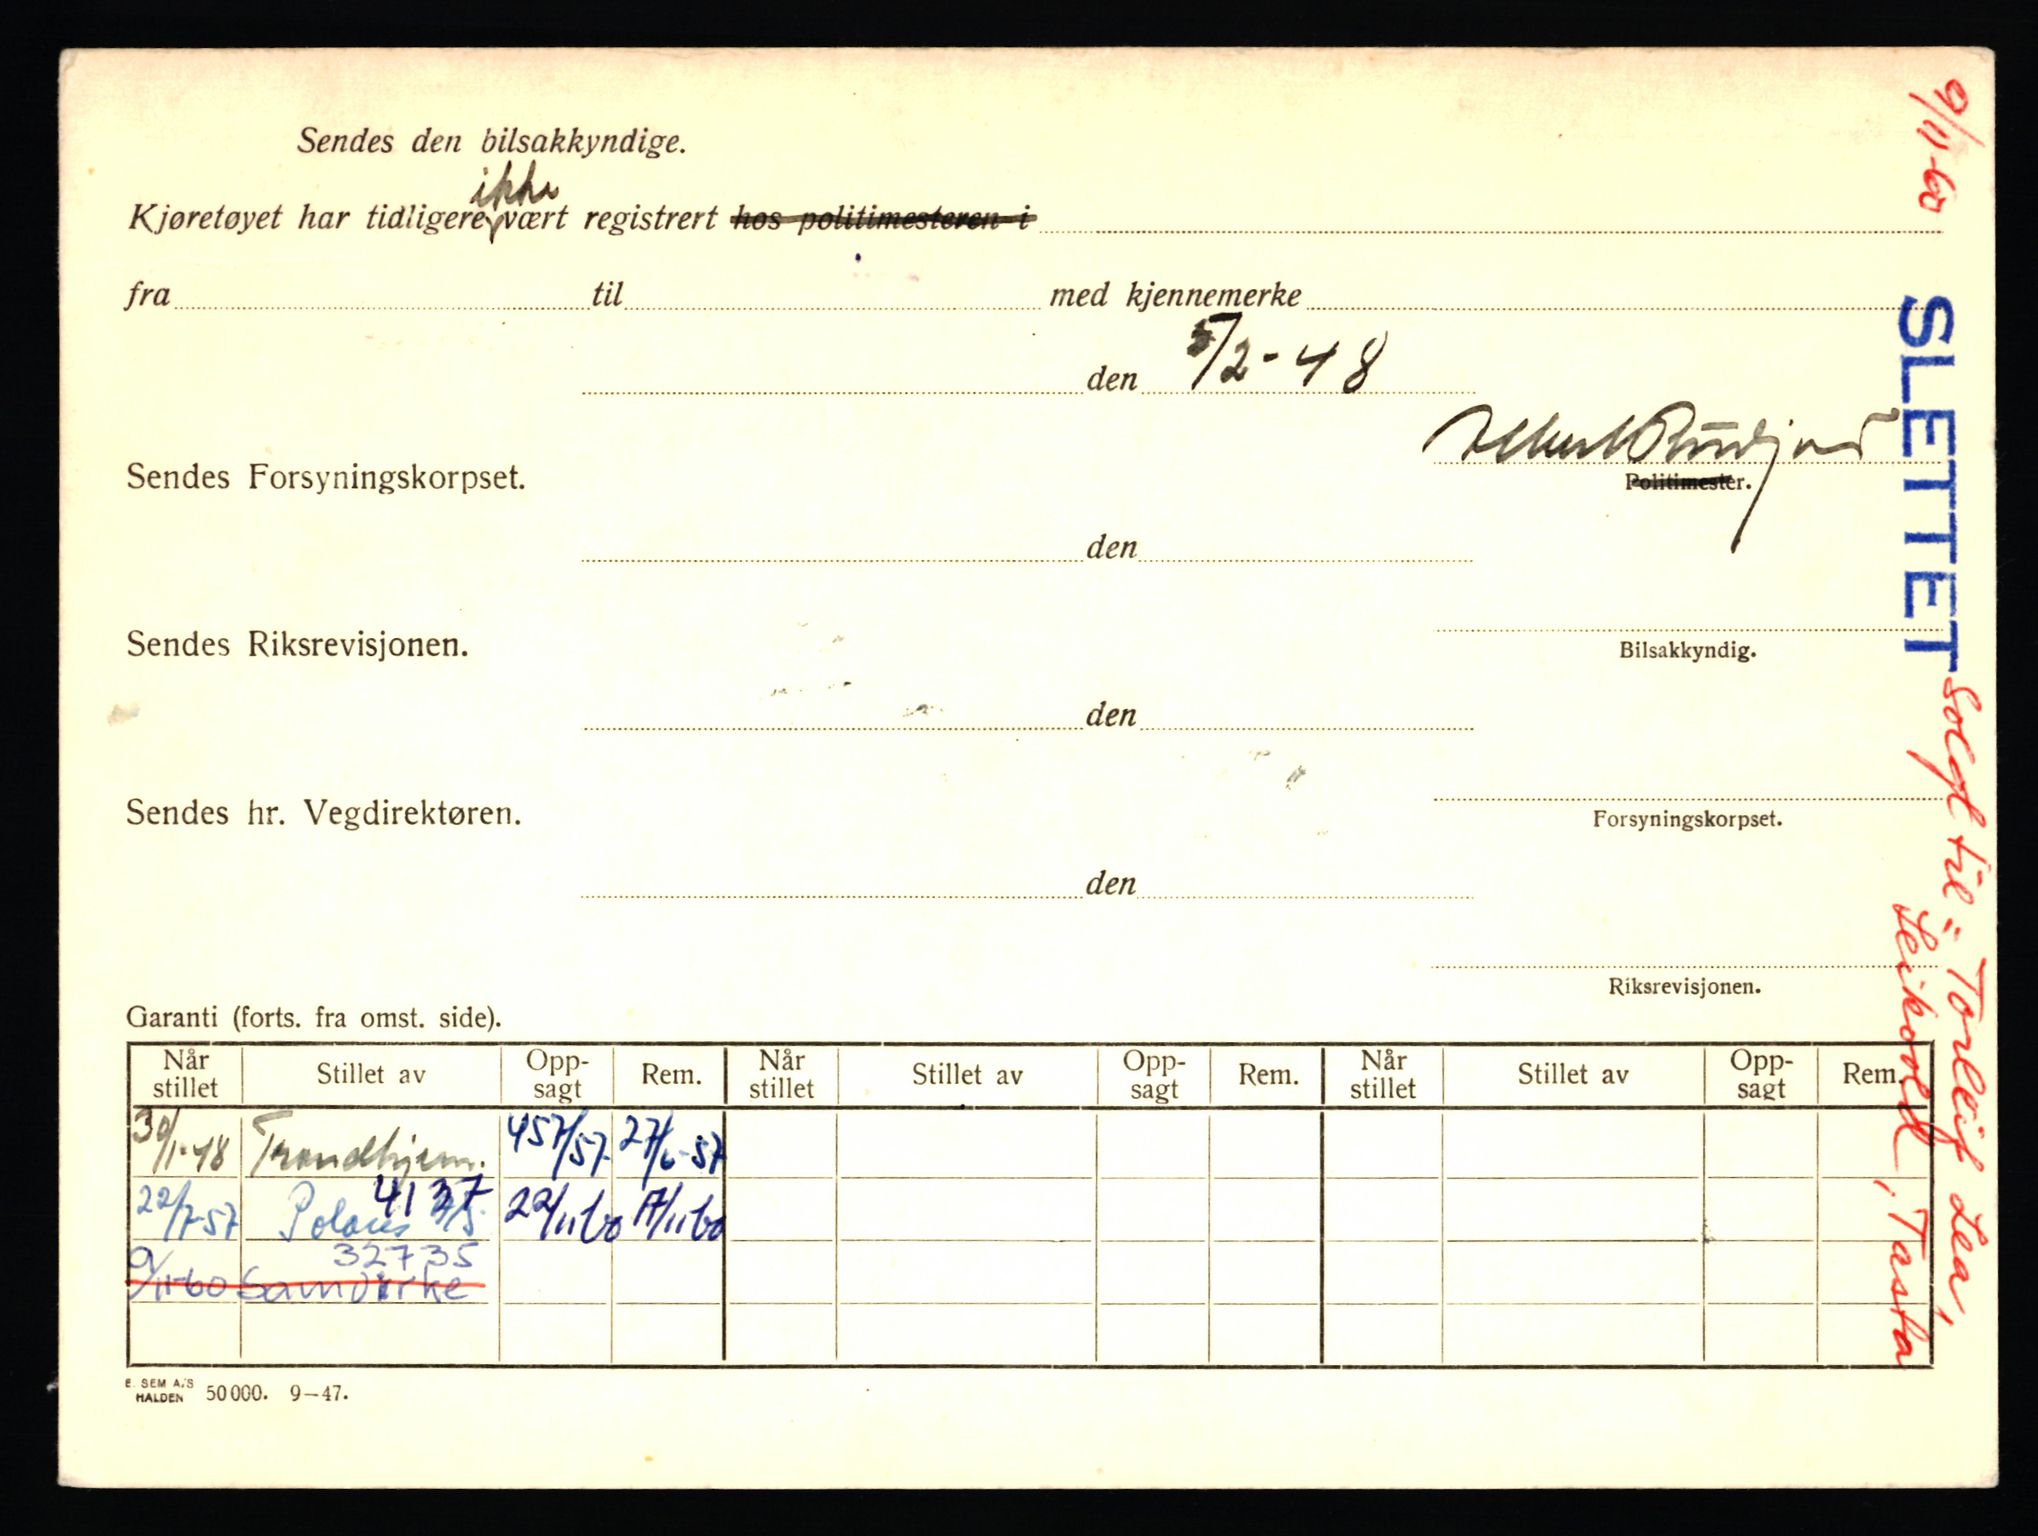 Sendes den bilsakkyndige.
ikke
Kjøretøyet har tidligere vært registrert hos politimesteren i
fra til med kjennemerke
den 5/2-48
Sendes Forsyningskorpset.
Politimester.
den
Sendes Riksrevisjonen.
Bilsakkyndig.
den
Sendes hr. Vegdirektøren.
Forsyningskorpset.
den
Riksrevisjonen.
Garanti (forts. fra omst. side).
Når stillet Stillet av Opp-sagt Rem. Når stillet Stillet av Opp-sagt Rem. Når stillet Stillet av Opp-sagt Rem.
30/1-48 Trondhjem. 457/57 27/6-57
4137
22/7-57 Polaris 22/11 60 17/11 60
32735
9/11-60 Samvirke
E. SEM A/S
HALDEN 50 000. 9-47.
9/11-60
SLETTET
Solgt til: Torleif Lea,
Leikvoll, Tasta